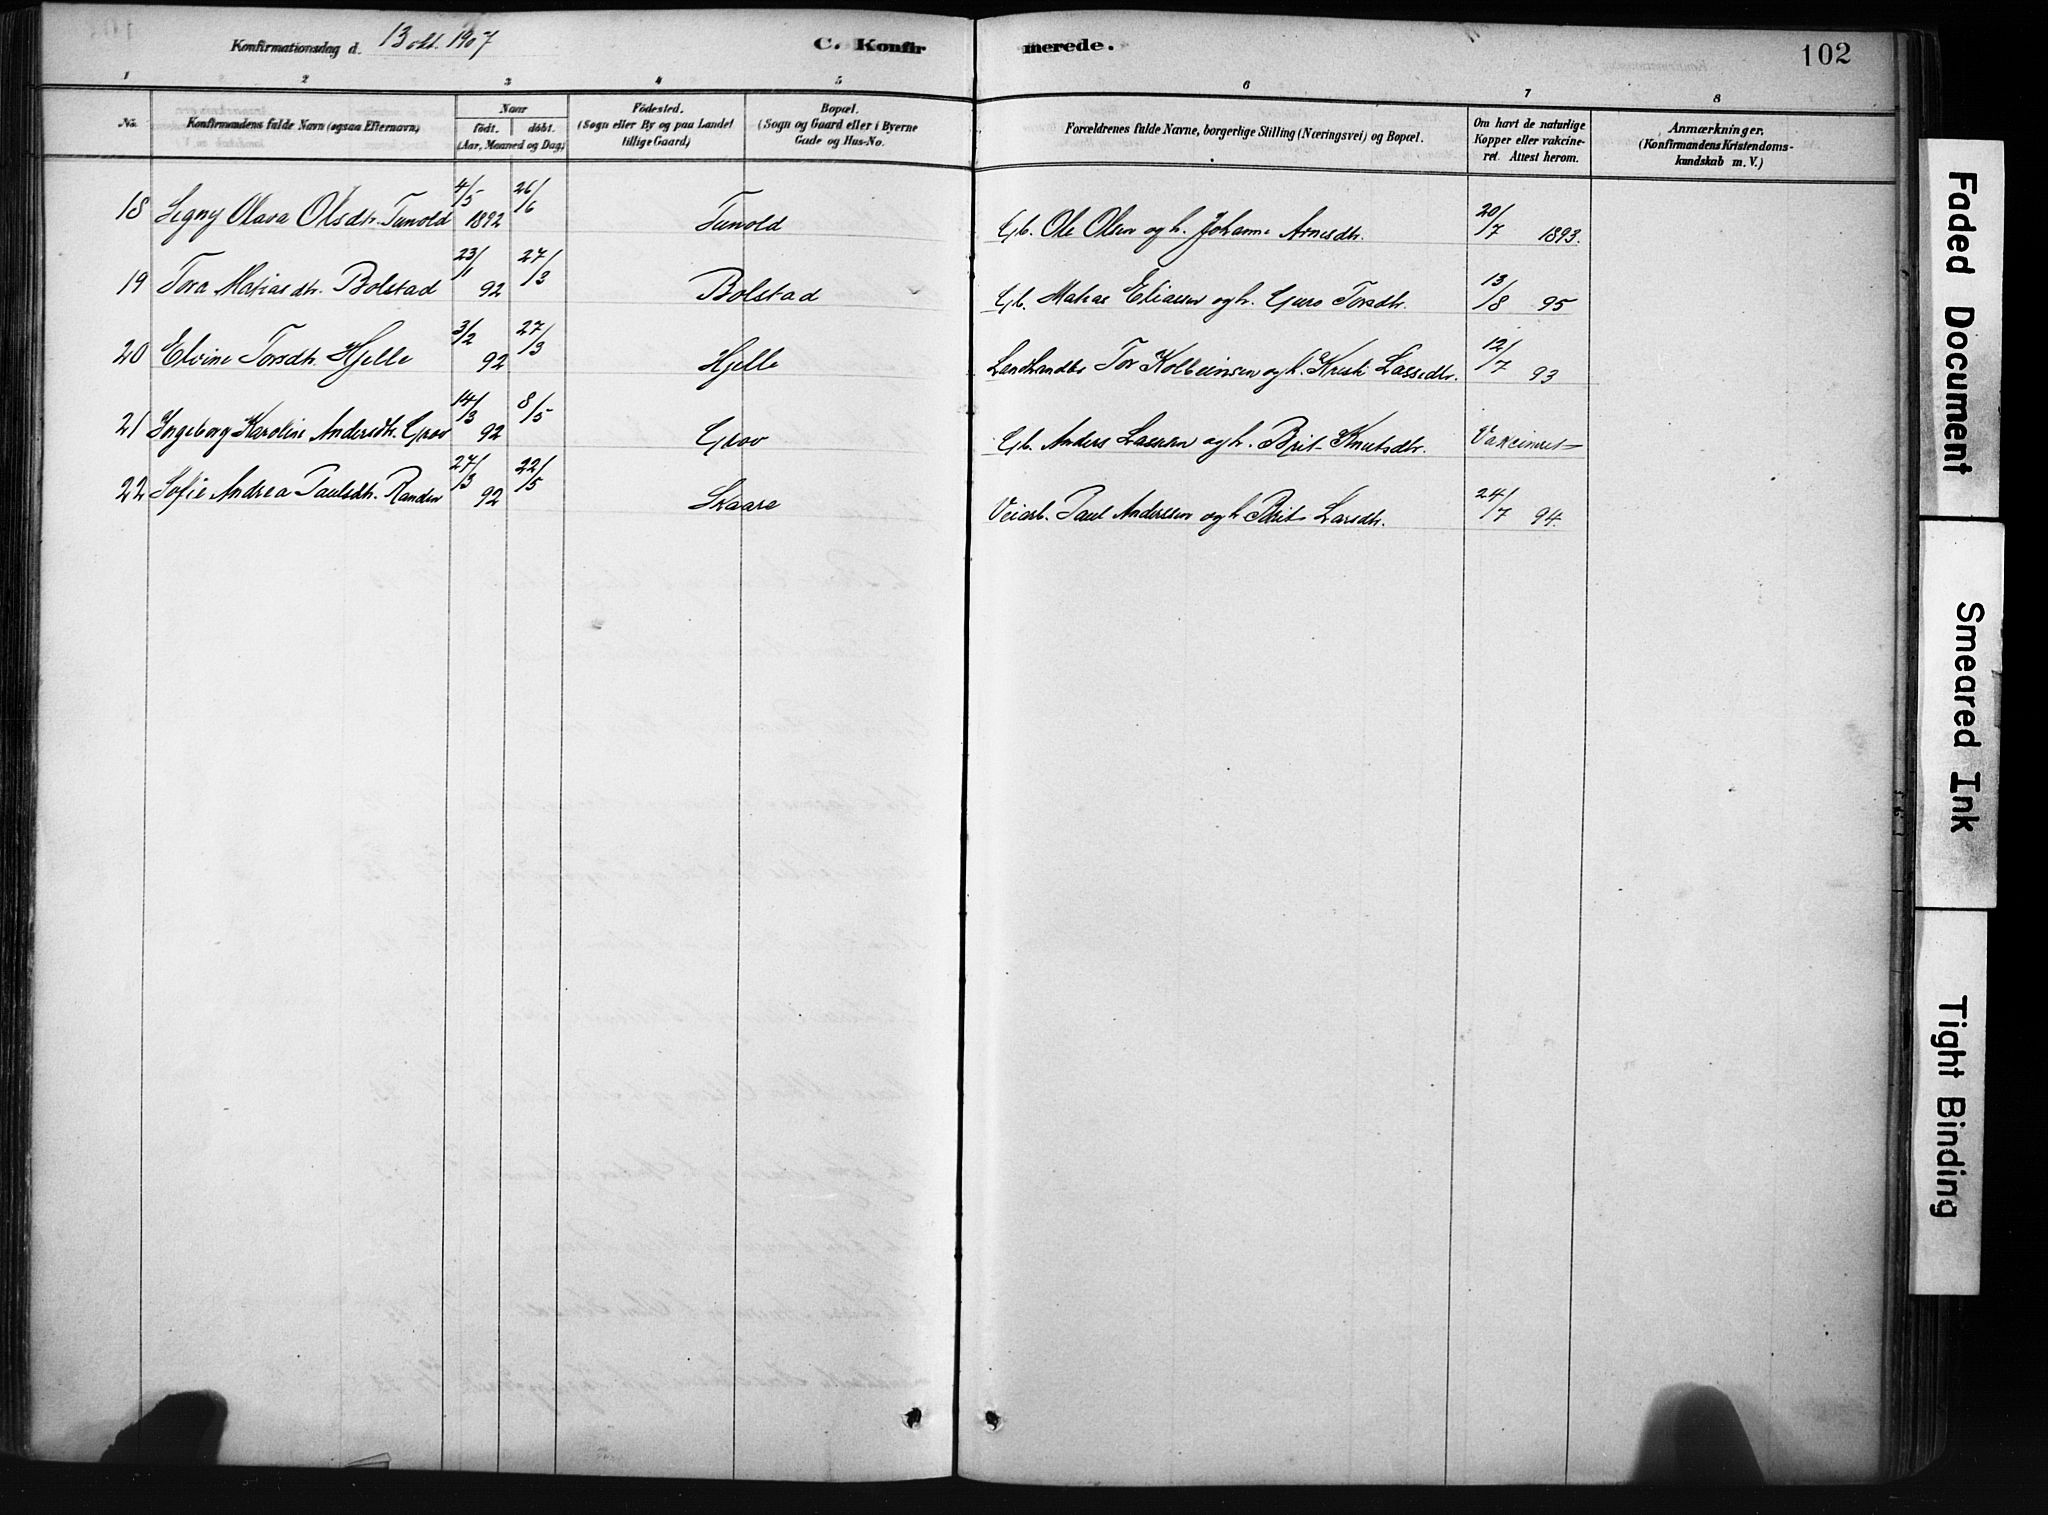 Konfirmationsdag d. 13 okt. 1907 C. Konfirmerede. 102
1 2 3 4 5 6 7 8
No. Konfirmandens fulde Navn (ogsaa Efternavn) Naar født. døbt. (Aar, Maaned og Dag) Fødested. (Sogn eller By og paa Landet tillige Gaard) Bopæl. (Sogn og Gaard eller i Byerne Gade og Hus-No. Forældrenes fulde Navne, borgerlige Stilling (Næringsvei) og Bopæl. Om havt de naturlige Kopper eller vakcineret. Attest herom. Anmærkninger. (Konfirmandens Kristendomskundskab m. V.)
18 Signy Olava Olsdtr. Tunold 4/5 1892 26/6 Tunold Gb. Ole Olsen og h. Johanne Arnesdtr. 20/7 1893.
19 Tora Matiasdtr. Bolstad 23/1 92 27/3 Bolstad Gb. Matias Eliassen og h. Guro Torsdtr. 13/8 95
20 Elvine Torsdtr. Hjelle 3/2 92 27/3 Hjelle Landhandler Tor Kolbeinsen og h. Kristi Lassedtr. 12/7 93
21 Ingeborg Karoline Andersdtr. Grov 14/3 92 8/5 Grov Gb. Anders Lassen og h. Brit Knutsdtr. Vakcineret
22 Sofie Andrea Paulsdtr. Randen 27/3 92 22/5 Skaare Veiarb. Paul Anderssen og h. Brit Larsdtr. 24/7 94.
Faded Document
Smeared Ink
Tight Binding